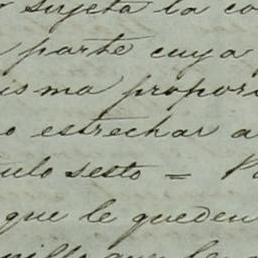 sujeta la co
parte cuya
isma propor
o estrechar a
ulo sesto =
que le queden
que le